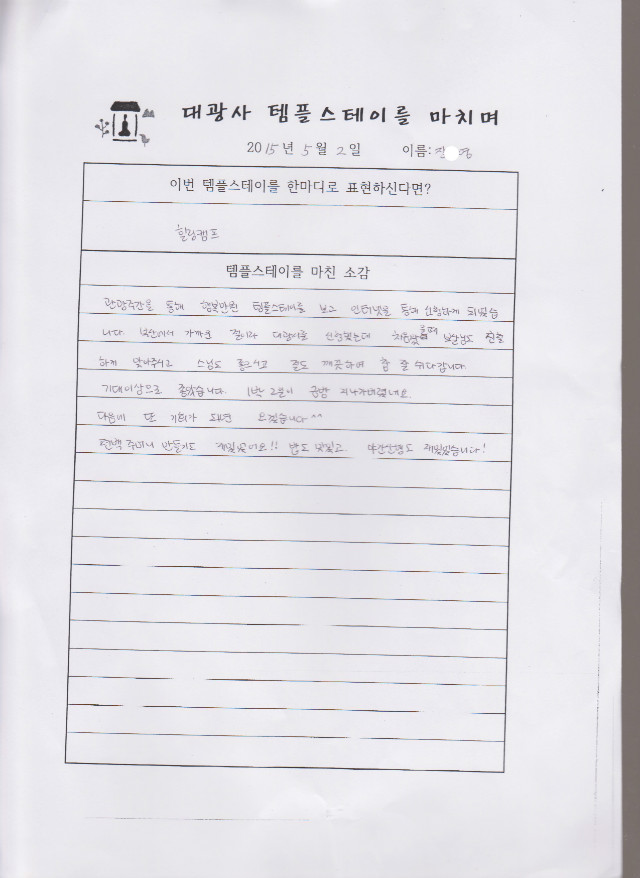 대광사 템플스테이를 마치며
2015년 5월 2일 이름: 진 영
이번 템플스테이를 한마디로 표현하신다면?
힐링캠프
템플스테이를 마친 소감
관광주간을 통해 행복만원 템플스테이를 보고 인터넷을 통해 신청하게 되었습
니다. 부산에서 가까운 절이라 대광사를 신청했는데 처음왔을때 보살님도 친절
하게 맞아주시고 스님도 좋으시고 절도 깨끗하여 참 잘 쉬다갑니다.
기대이상으로 좋았습니다. 1박 2일이 금방 지나가버렸네요.
다음에 또 기회가 되면 오겠습니다^^
편백 주머니 만들기도 재밌었어요!! 밥도 맛있고. 야간산행도 재밌었습니다!